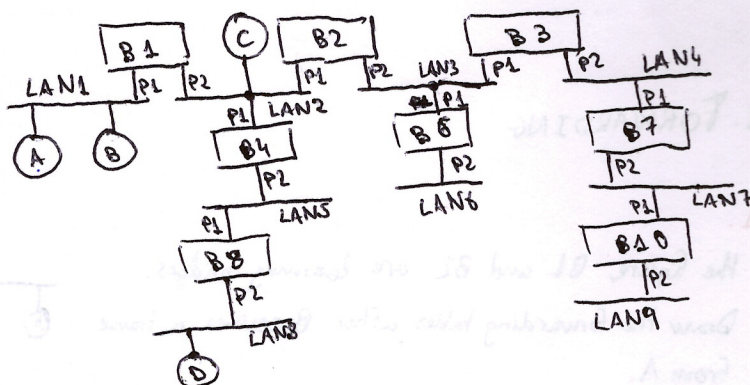 B1
C
B2
B3
LAN1
P1
P2
P1
P2
LAN3
P1
P2
LAN4
LAN2
P1
P1
P1
A
B
B4
B6
B7
P2
P2
P2
LAN5
LAN6
LAN7
P1
P1
B8
B10
P2
P2
LAN8
LAN9
D